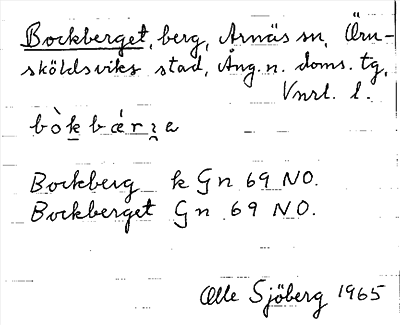 Bockberget, berg, Arnäs sn, Örn-
sköldsviks stad, Ång. n. doms. tg,
Vnrl. l.
bòkbǽrɜa
Bockberg k Gn 69 NO.
Bockberget Gn 69 NO.
Olle Sjöberg 1965